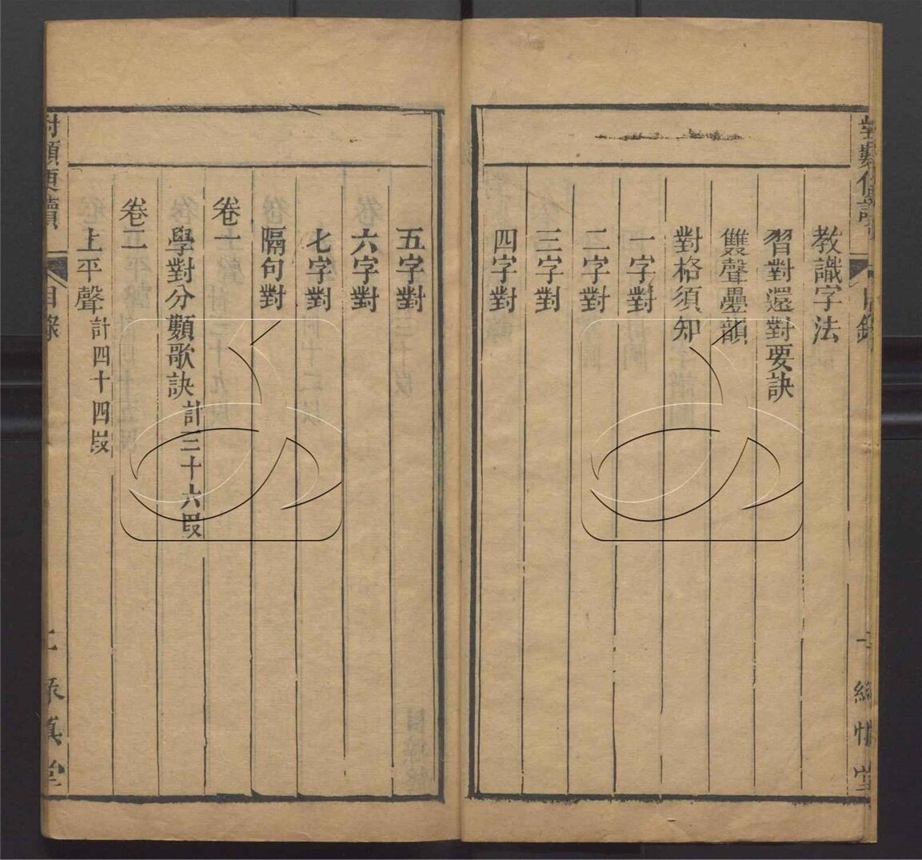 教識字法
習對還對要訣
雙聲疊韻
對格須知
一字對
二字對
三字對
四字對
五字對
六字對
七字對
隔句對
卷一
學對分類歌訣計三十六段
卷二
上平聲計四十四段
目錄